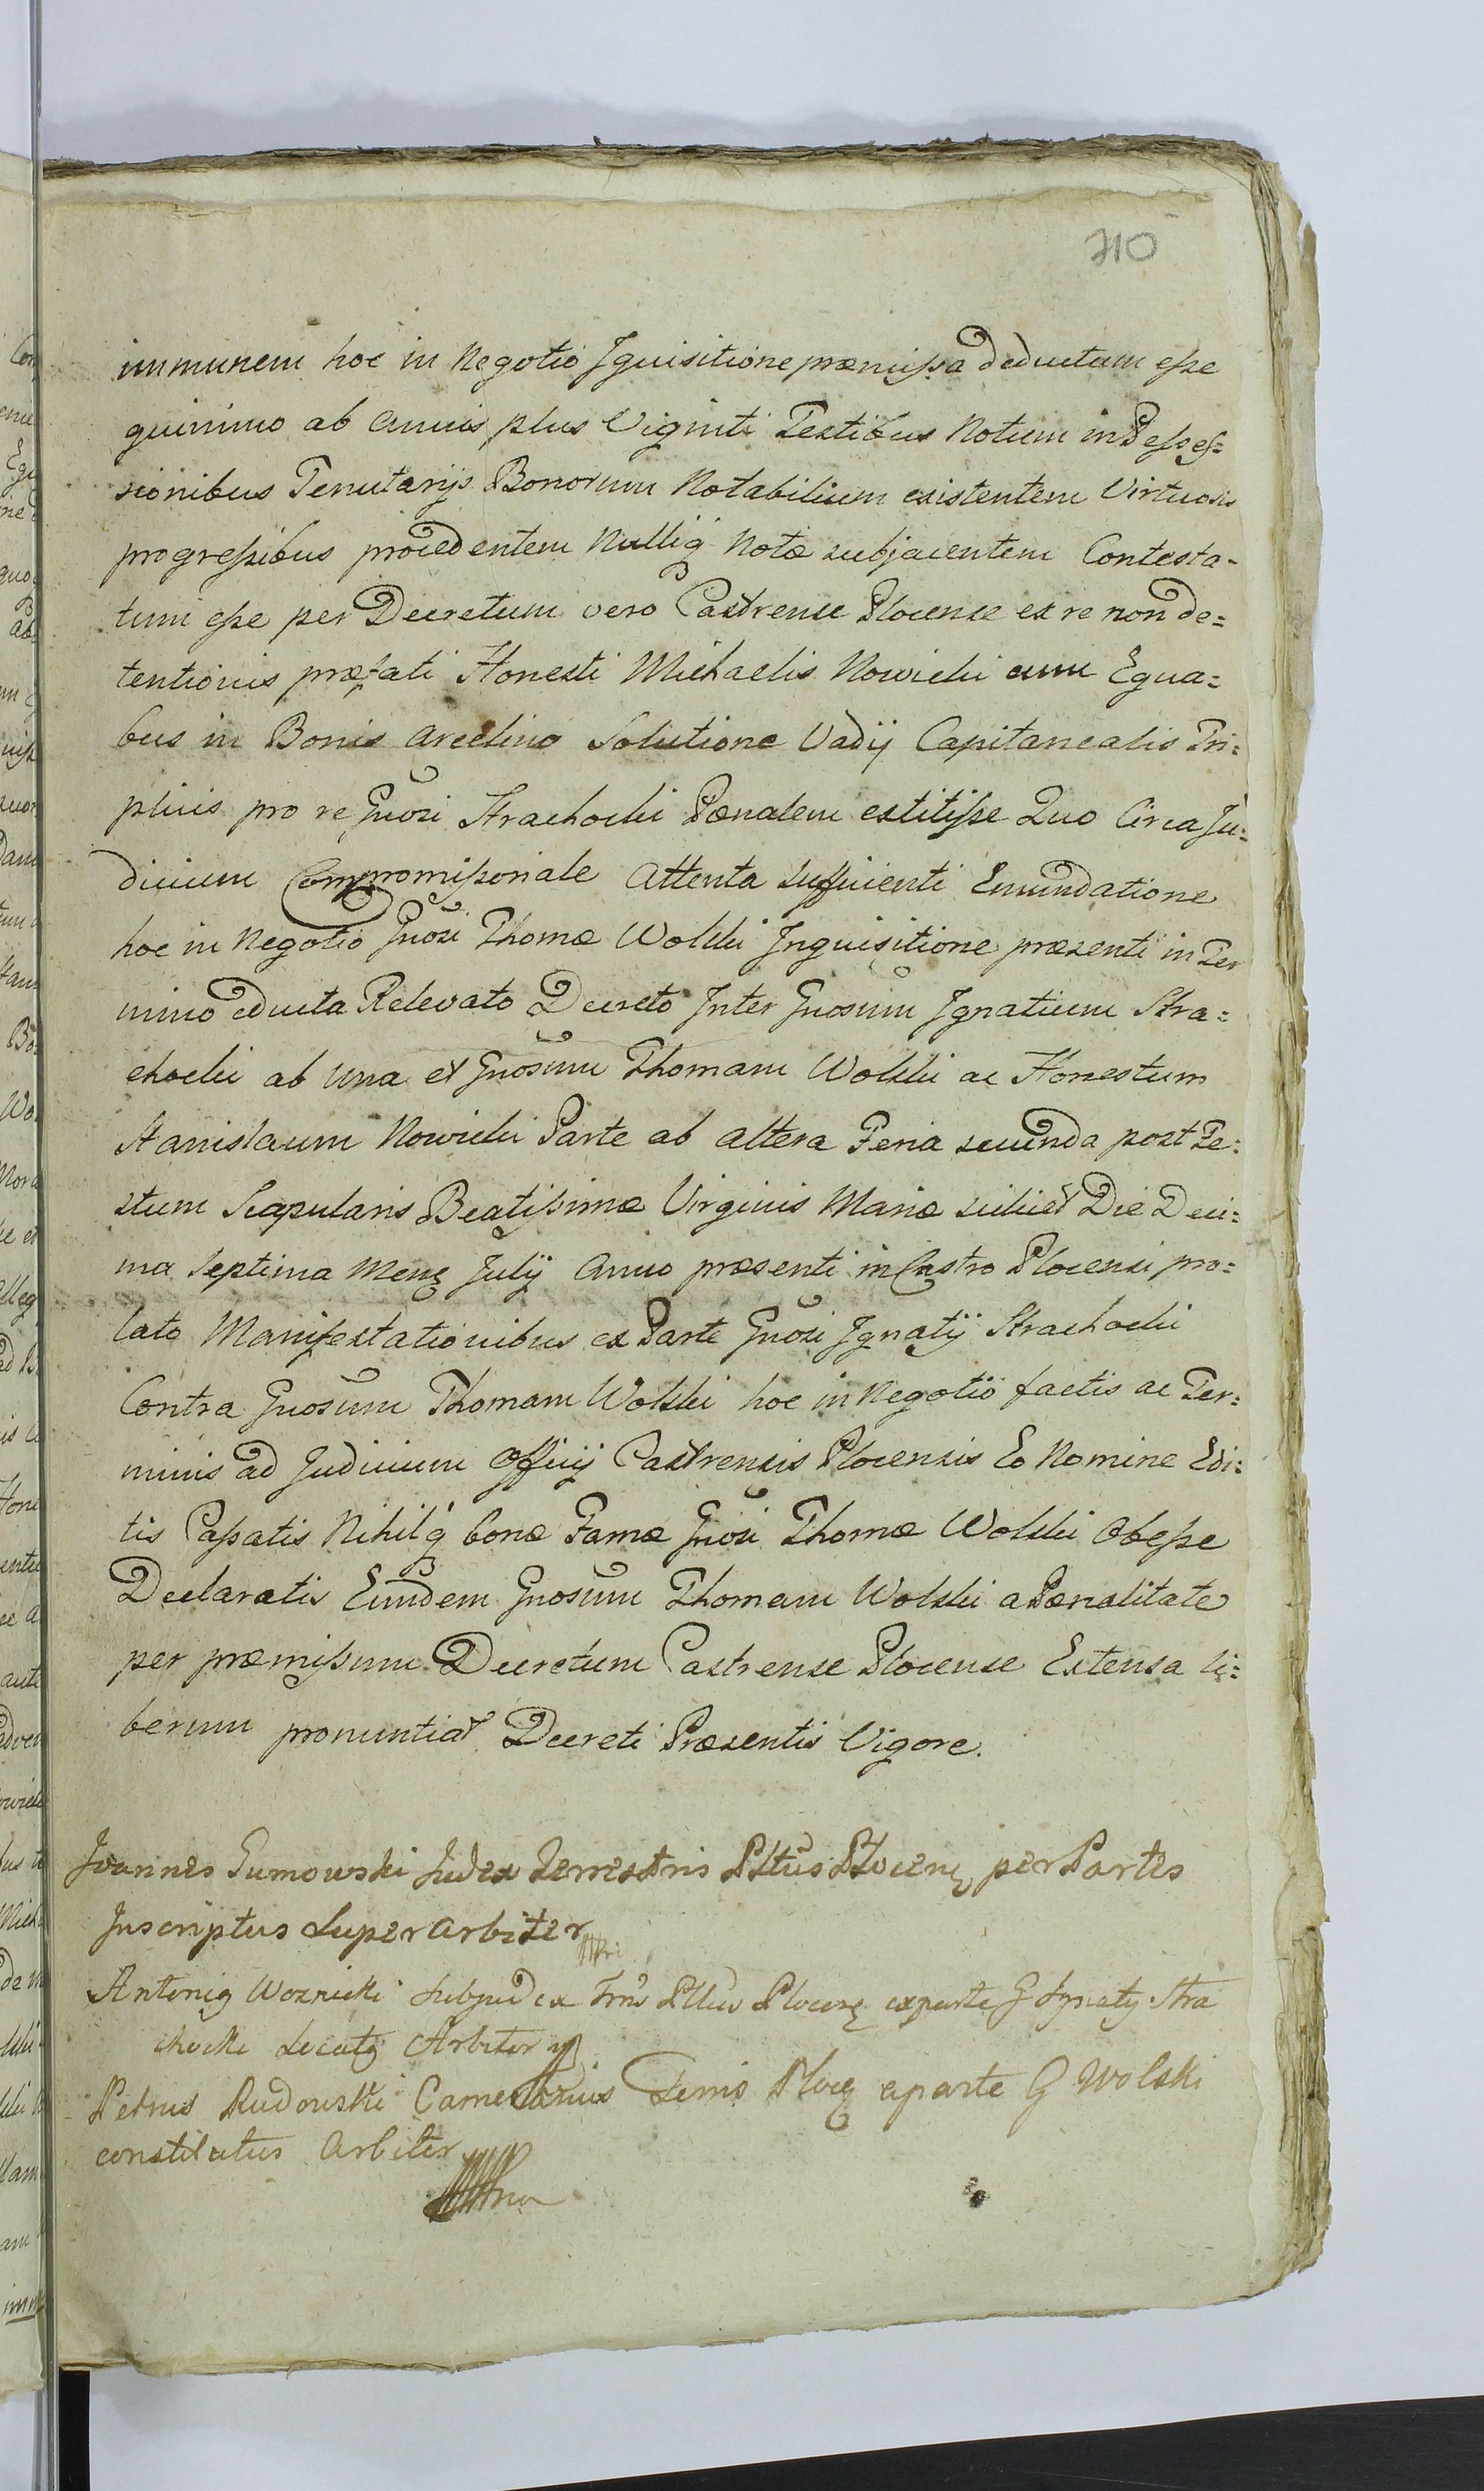 710
immunem hoc in Negotio Iquisitione præmissa deductum esse
quinimo ab annis plus Viginti Testibus Notum in Posses=
sionibus Tenutarijs Bonorum Notabilium existentem Virtuosis
progressibus procedentem Nulliq Notæ subjacentem Contesta-
tum esse per Decretum vero Castrense Plocense ex re non de=
tentionis præfati Honesti Michaelis Nowicki cum Equa=
bus in Bonis Arcelino Solutione Vadij Capitanealis Tri=
plicis pro re Gnosi Strachocki Pœnalem extitisse Quo Circa Ju=
dicium Compromissoriale Attenta sufficienti Emundatione
hoc in Negotio Gnosi Thomæ Wolski Inquisitione præsenti in Ter
mino educta Relevato Decreto Inter Gnosum Ignatium Stra=
chocki ab una et Gnosum Thomam Wolski ac Honestum
Stanislaum Nowicki Parte ab altera Feria secunda post Fe=
stum Scapularis Beatissimæ Virginis Mariæ scilicet Die Deci=
ma Septima Mens Julij Anno præsenti in Castro Plocensi pro=
lato Manifestationibus ex Parte Gnosi Ignatij Strachocki
Contra Gnosum Thomam Wolski hoc in Negotio factis ac Ter=
minis ad Judicium Officij Castrensis Plocensis Eo Nomine Edi=
tis Cassatis Nihilq bonæ Famæ Gnosi Thomæ Wolski Obesse
Declaratis Eundem Gnosum Thomam Wolski a Pœnalitate
per præmissum Decretum Castrense Plocense Extensa li=
berum pronuntiat Decreti Præsentis Vigore.
Joannes Gumowski Judex Terrestris Pltus Plocens per Partes
Inscriptus Super Arbiter
Antonig Woznicki Subjudex Trris Pltus Plocens ex parte G Ignaty Stra
chocki Locatg Arbiter
Petrus Rudowski Camerarius Terris Ploc a parte G Wolski
constitutus Arbiter